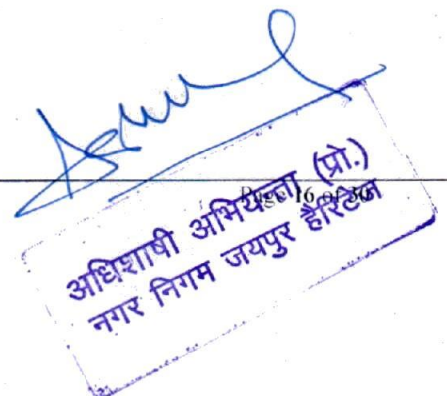 Page 16 of 30
अधिशाषी अभियन्ता (प्रो.)
नगर निगम जयपुर हैरिटेज